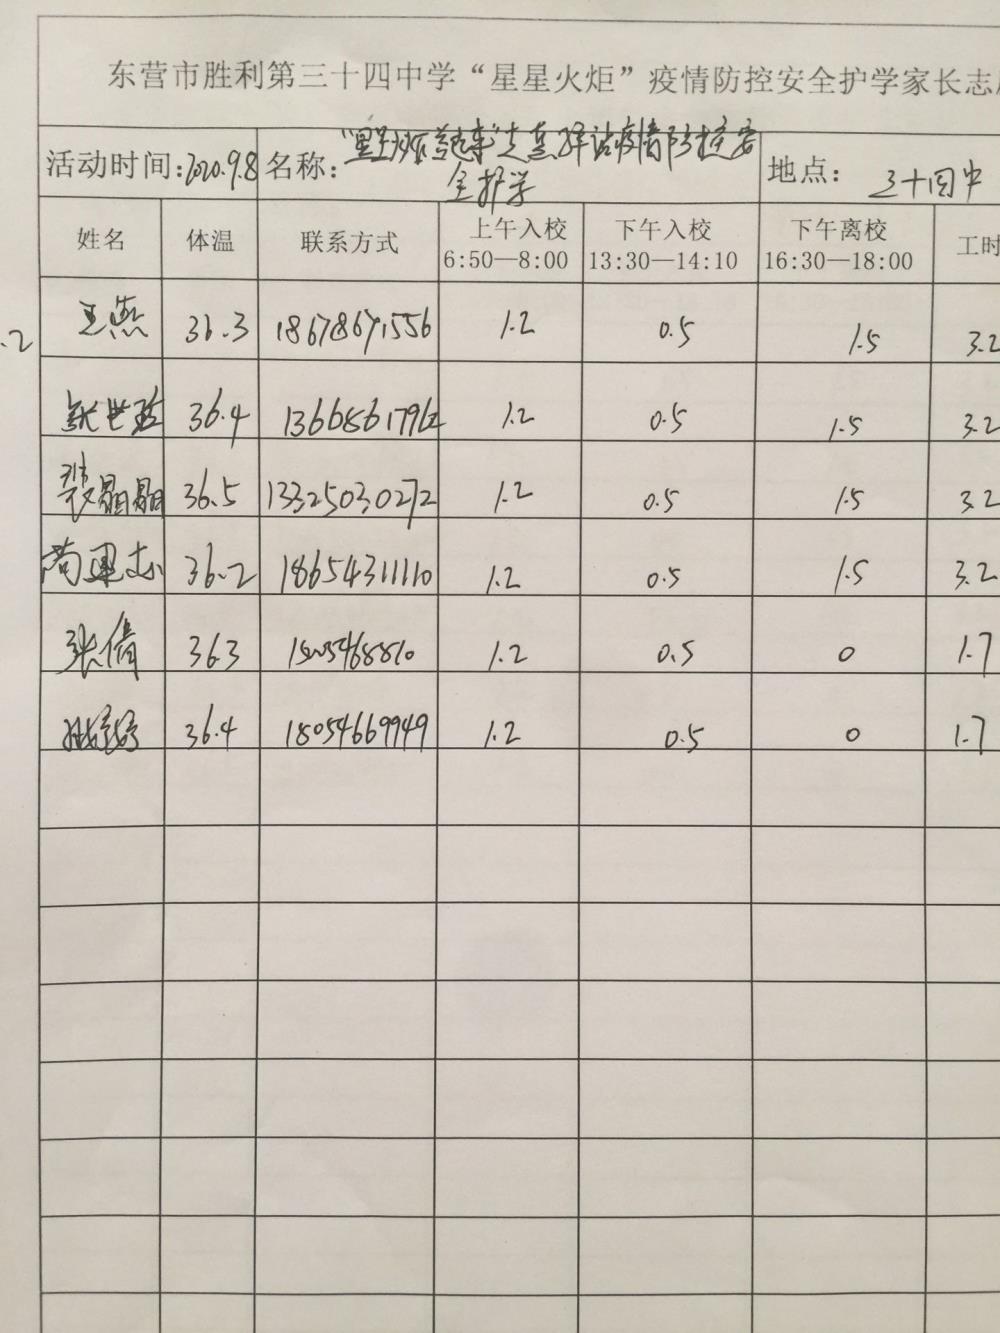 东营市胜利第三十四中学“星星火炬”疫情防控安全护学家长志
活动时间:2020.9.8 名称: 疫情防控安 地点: 三十四中
全护学
姓名 体温 联系方式 上午入校 下午入校 下午离校 工时
6:50—8:00 13:30—14:10 16:30—18:00
王燕 36.3 18678671556 1.2 0.5 1.5 3.2
.2
36.4 13668617962 1.2 0.5 1.5 3.2
裴晶晶 36.5 13325030272 1.2 0.5 1.5 3.2
36.2 18654311110 1.2 0.5 1.5 3.2
张倩 36.3 1.2 0.5 0 1.7
36.4 18054669949 1.2 0.5 0 1.7